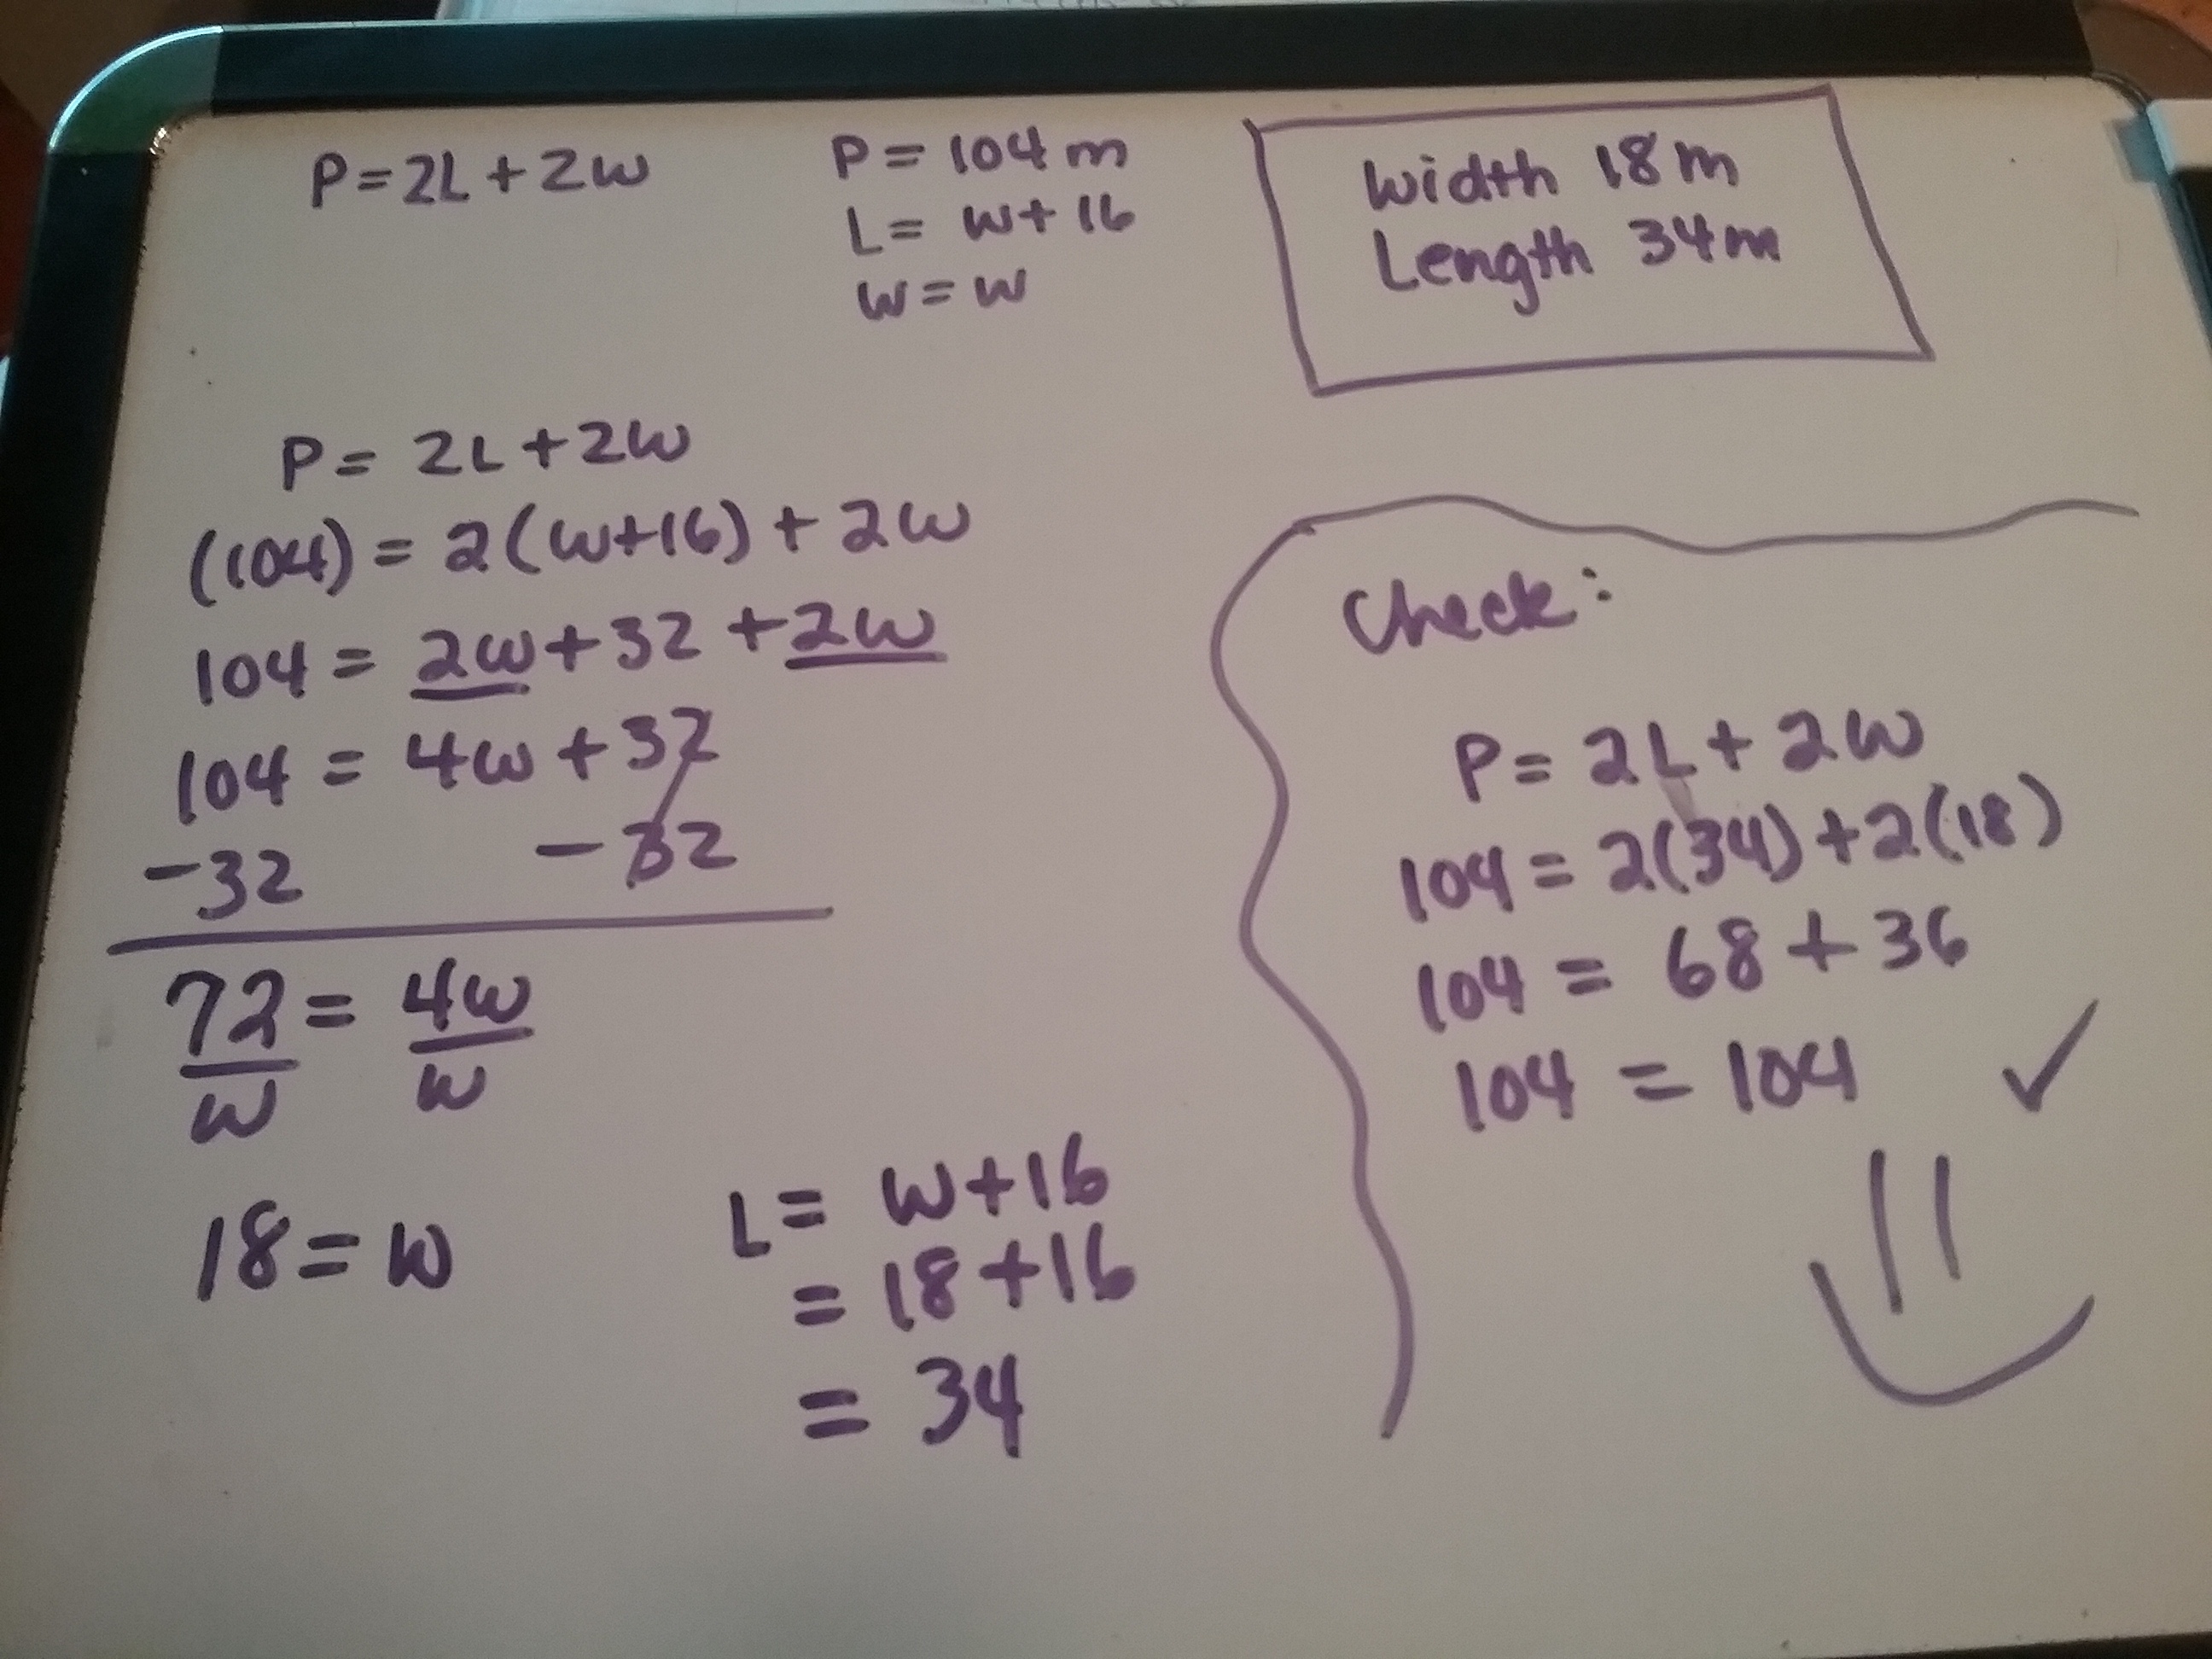 P=2L+2W
P= 104 m
L= W+16
W=W
Width 18m
Length 34m
P= 2L+2W
(104) = 2(W+16) + 2W
104 = 2W+32 +2W
104 = 4W+32
-32 -32
72 = 4W
W W
18=W
L= W+16
= 18+16
= 34
Check:
P= 2L+ 2W
104 = 2(34)+2(18)
104 = 68+36
104 = 104 ✓